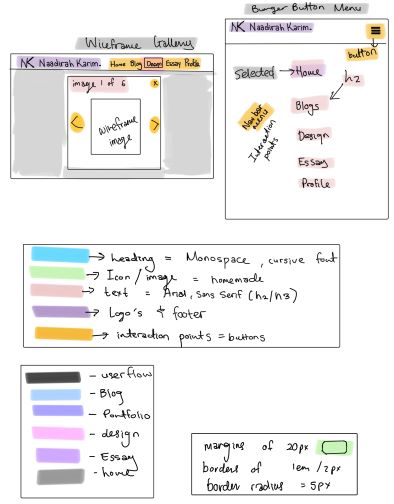 Wireframe Gallery
NK Naadirah Karim.
Home Blog Design Essay Profile
image 1 of 6
x
<
Wireframe
image
>
Burger Button Menu
NK Naadirah Karim.
button
Selected
Home
h2
Nav bar
menu
Interaction
points
Blogs
Design
Essay
Profile
heading = Monospace, cursive font
Icon / image = homemade
text = Arial, Sans Serif (h2/h3)
Logo's & footer
interaction points = buttons
- userflow
- Blog
- Portfolio
- design
- Essay
- home
margins of 20px
borders of 1em / 2px
border radius = 5px